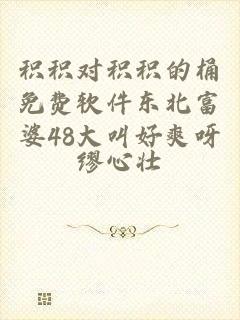 积积对积积的桶
免费软件东北富
婆48大叫好爽呀
缪心壮